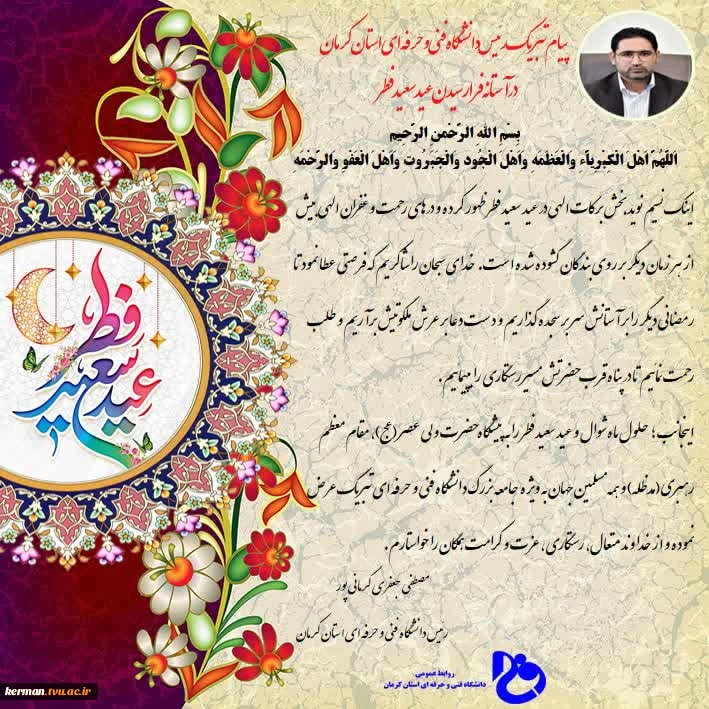 پیام تبریک رئیس دانشگاه فنی و حرفه ای استان کرمان
در آستانه فرارسیدن عید سعید فطر
بِسْمِ اللهِ الرَّحْمنِ الرَّحیمِ
اَللّهُمَّ اَهْلَ الْکِبْرِیاَّءِ وَالْعَظَمَهِ وَاَهْلَ الْجُودِ وَالْجَبَرُوتِ وَاَهْلَ الْعَفْوِ وَالرَّحْمَهِ
اینک نسیم نویدبخش برکات الهی در عید سعید فطر ظهور کرده و درهای رحمت و غفران الهی بیش
از هر زمان دیگر بر روی بندگان گشوده شده است. خدای سبحان را شاکریم که فرصتی عطا نمود تا
رمضانی دیگر را بر آستانش سر بر سجده گذاریم و دست دعا بر عرش ملکوتیش برآریم و طلب
رحمت نمائیم تا در پناه قرب حضرتش مسیر رستگاری را بپیماییم.
اینجانب؛ حلول ماه شوال و عید سعید فطر را به پیشگاه حضرت ولی عصر(عج)، مقام معظم
رهبری(مدظله) و همه مسلمین جهان به ویژه جامعه بزرگ دانشگاه فنی و حرفه ای تبریک عرض
نموده و از خداوند متعال، رستگاری، عزت و کرامت همگان را خواستارم.
مصطفی جعفری کرمانی پور
رئیس دانشگاه فنی و حرفه ای استان کرمان
عید سعید فطر
روابط عمومی
دانشگاه فنی و حرفه ای استان کرمان
kerman.tvu.ac.ir